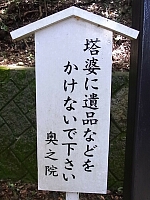 塔婆に遺品などを
かけないで下さい
奥之院